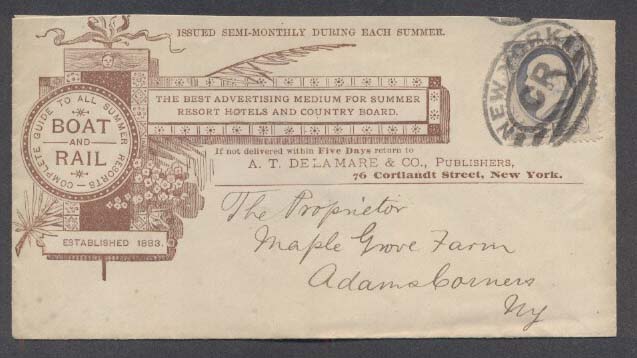 ISSUED SEMI-MONTHLY DURING EACH SUMMER.
COMPLETE GUIDE TO ALL SUMMER RESORTS
BOAT
AND
RAIL
ESTABLISHED 1883.
THE BEST ADVERTISING MEDIUM FOR SUMMER
RESORT HOTELS AND COUNTRY BOARD.
If not delivered within Five Days return to
A. T. DELAMARE & CO., PUBLISHERS,
76 Cortlandt Street, New York.
NEW YORK
CR
The Proprietor
Maple Grove Farm
Adams Corners
Ny